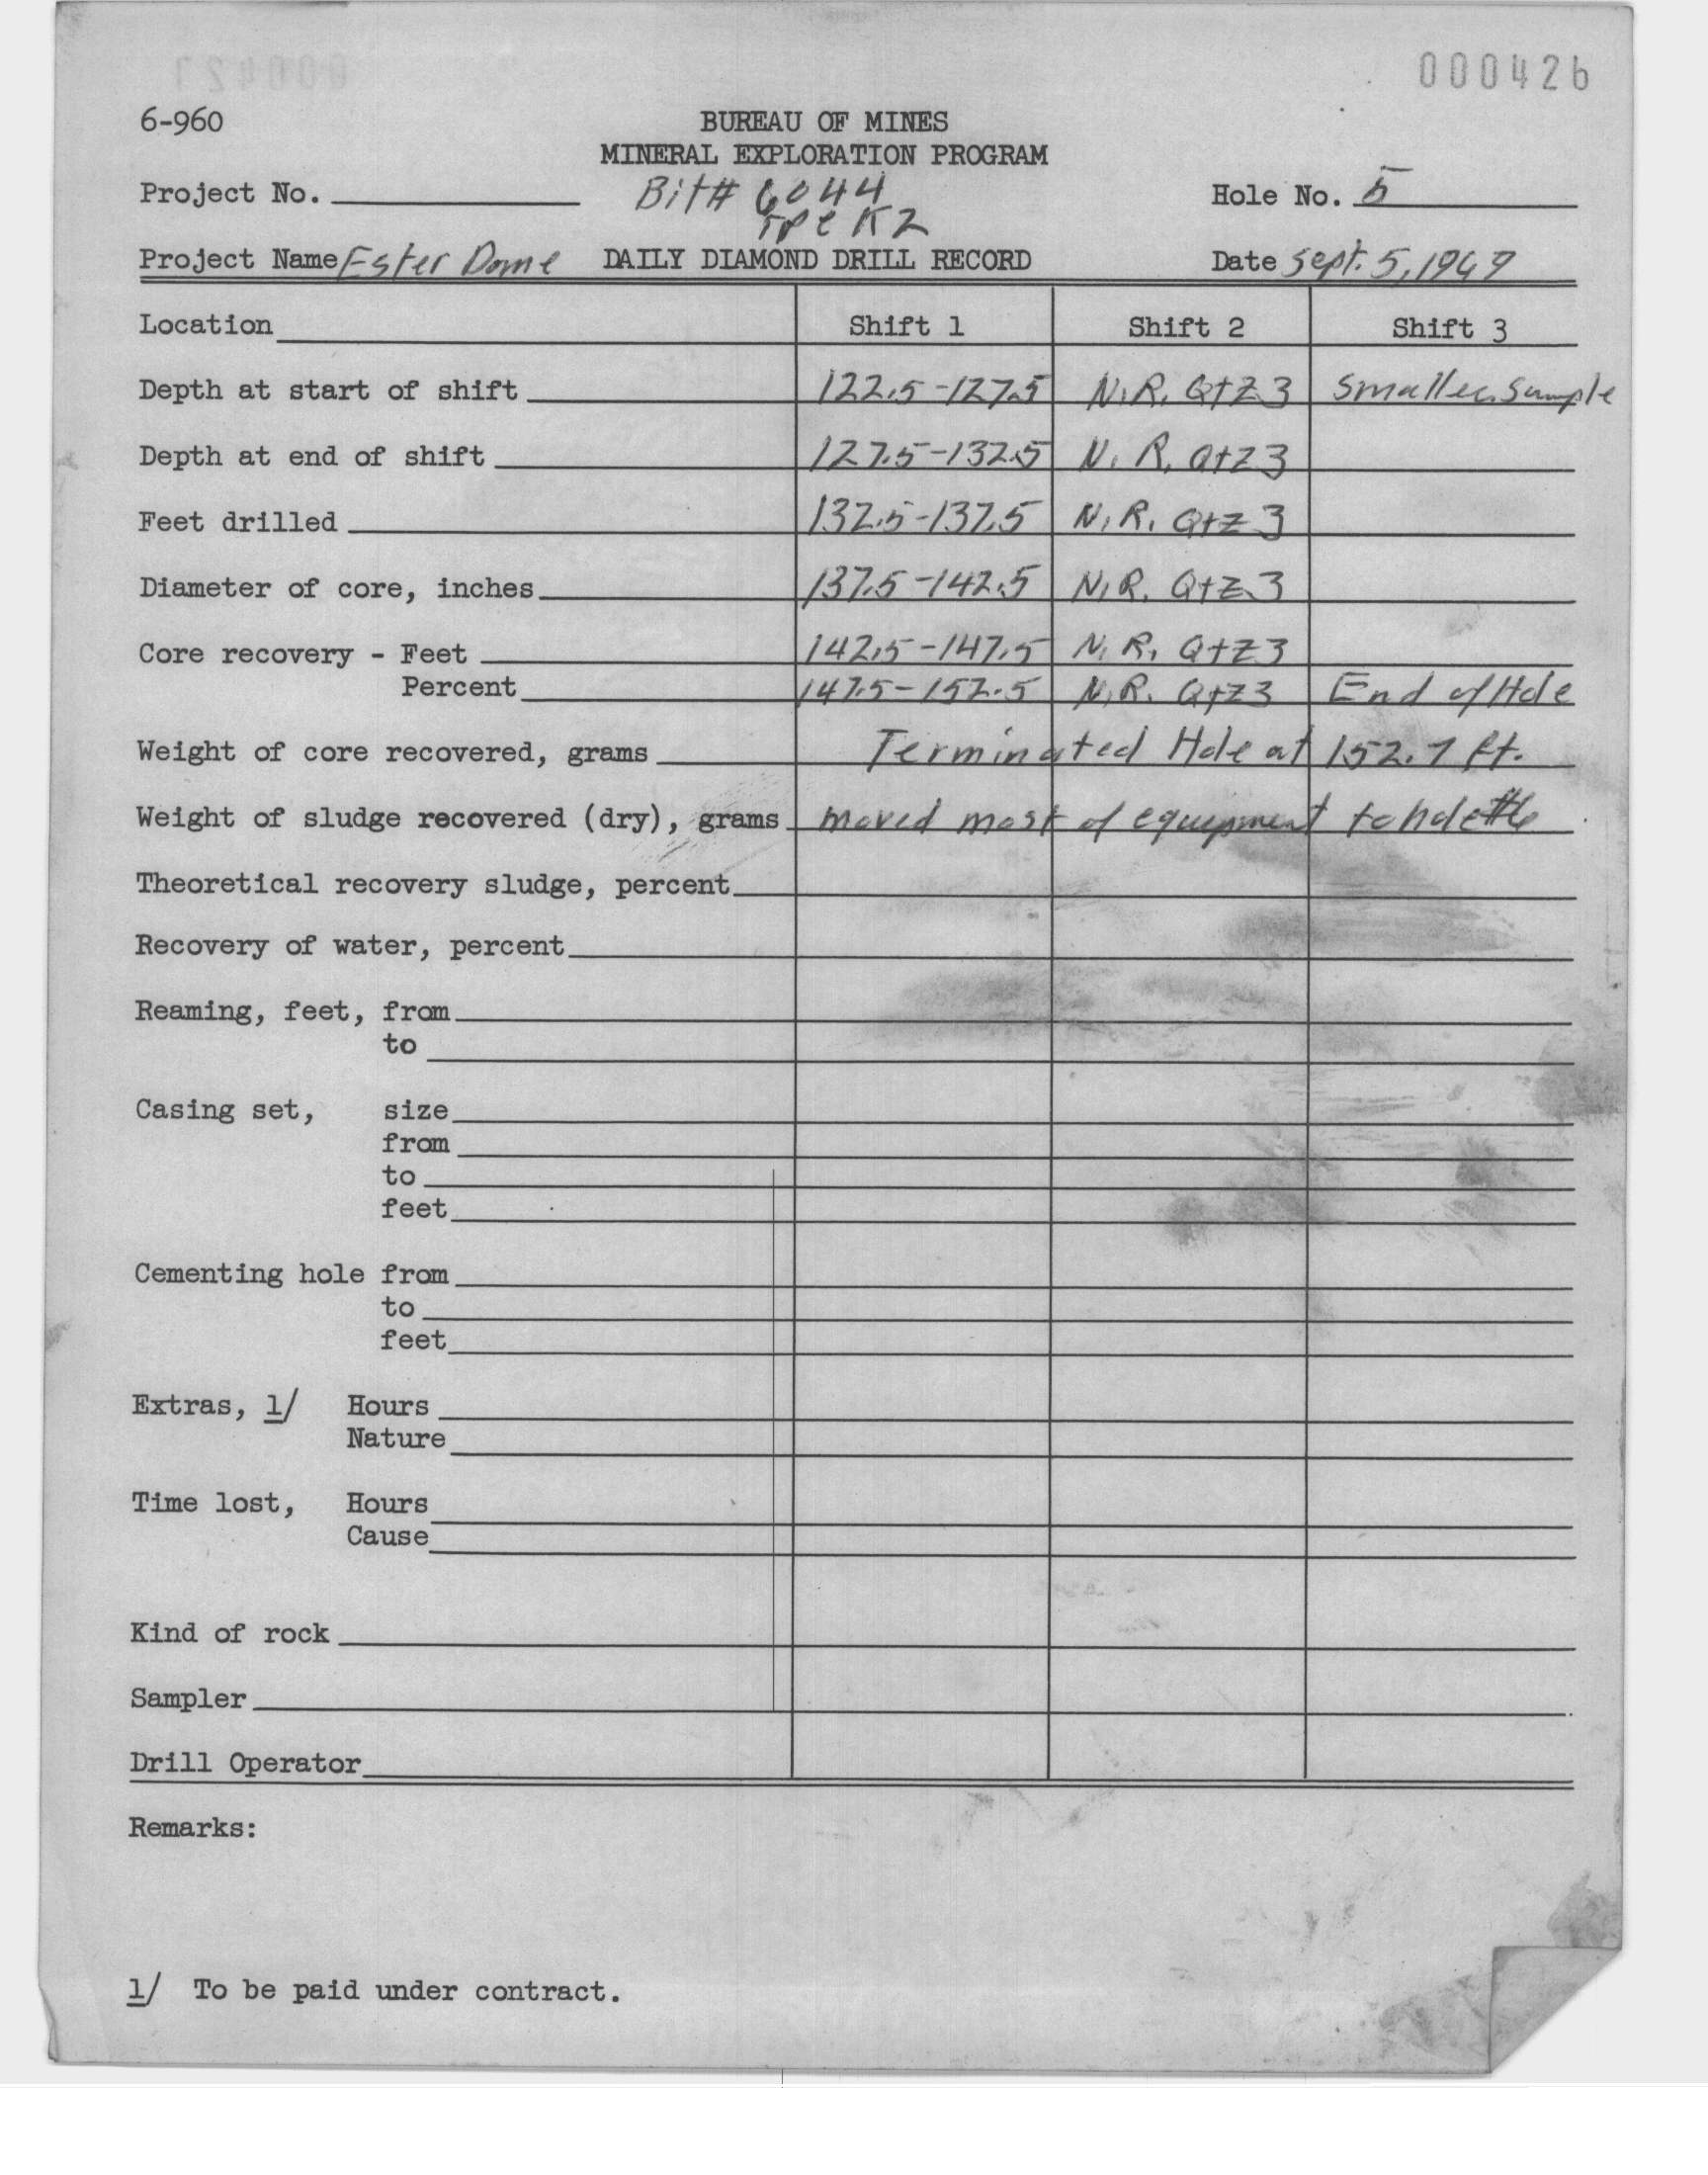 000426
6-960
BUREAU OF MINES
MINERAL EXPLORATION PROGRAM
Project No. Bit# 6044 Hole No. 5
K2
Project Name Ester Dome DAILY DIAMOND DRILL RECORD Date Sept. 5, 1969
Location Shift 1 Shift 2 Shift 3
Depth at start of shift 122.5-127.5 N.R. QtZ 3 Smaller Sample
Depth at end of shift 127.5-132.5 N. R. QtZ 3
Feet drilled 132.5-137.5 N.R. QtZ 3
Diameter of core, inches 137.5-142.5 N.R. QtZ 3
Core recovery - Feet 142.5-147.5 N.R. QtZ 3
Percent 147.5-152.5 N.R. QtZ 3 End of Hole
Weight of core recovered, grams Terminated Hole at 152.7 ft.
Weight of sludge recovered (dry), grams moved most of equipment to hole #6
Theoretical recovery sludge, percent
Recovery of water, percent
Reaming, feet, from
to
Casing set, size
from
to
feet
Cementing hole from
to
feet
Extras, 1/ Hours
Nature
Time lost, Hours
Cause
Kind of rock
Sampler
Drill Operator
Remarks:
1/ To be paid under contract.